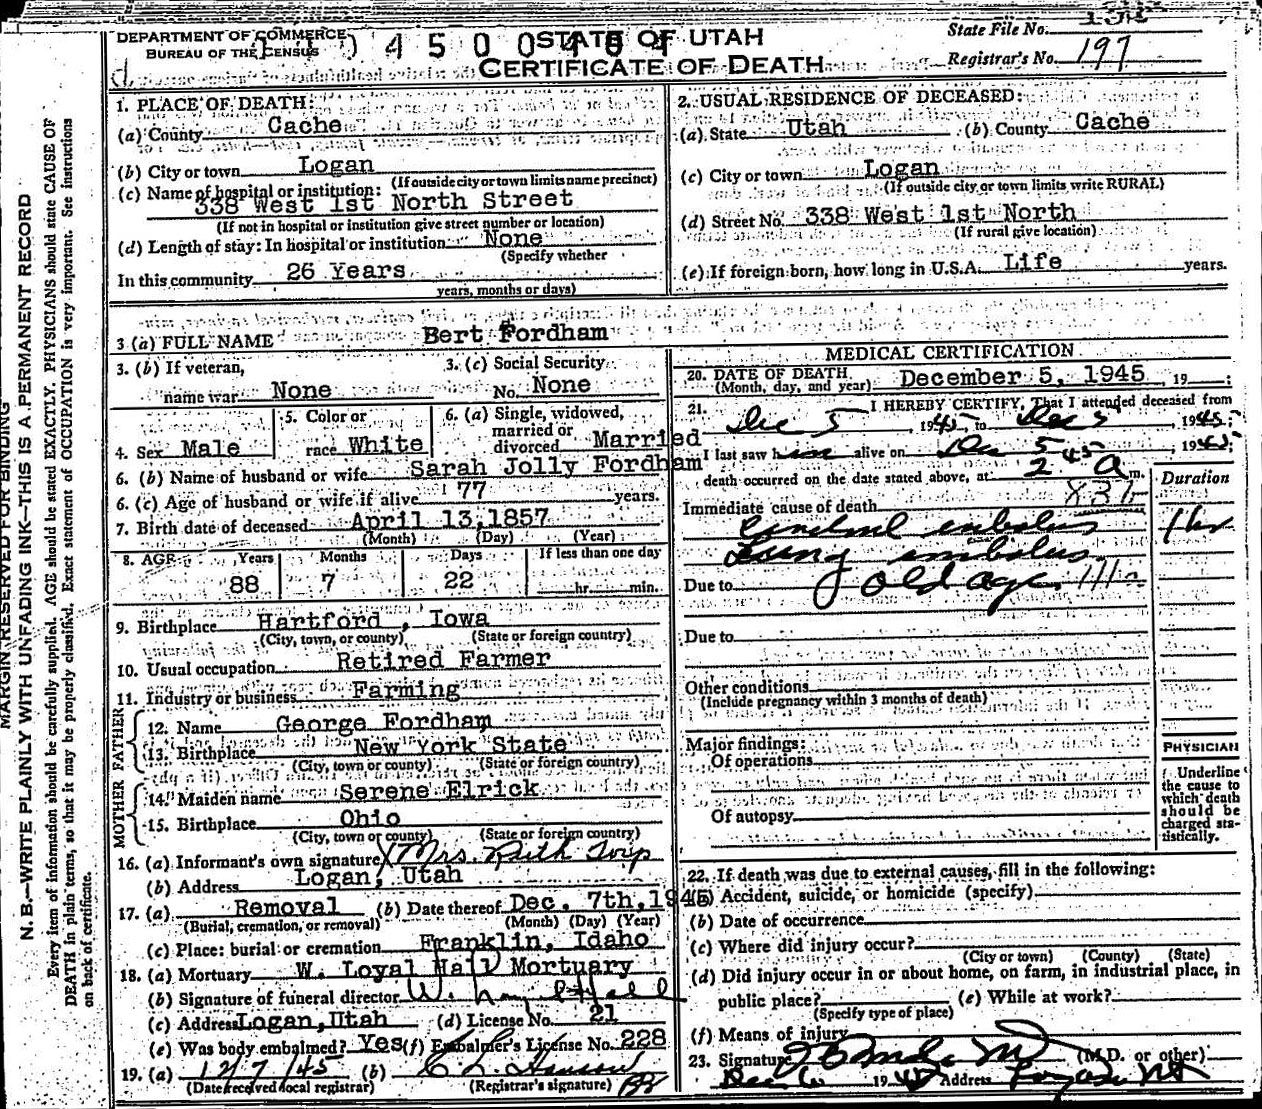 DEPARTMENT OF COMMERCE
BUREAU OF THE CENSUS
STATE OF UTAH
CERTIFICATE OF DEATH
State File No.
Registrar's No. 197
1. PLACE OF DEATH:
(a) County Cache
(b) City or town Logan
(If outside city or town limits name precinct)
(c) Name of hospital or institution:
338 West 1st North Street
(If not in hospital or institution give street number or location)
(d) Length of stay: In hospital or institution None
(Specify whether
In this community 26 Years
years, months or days)
2. USUAL RESIDENCE OF DECEASED:
(a) State Utah (b) County Cache
(c) City or town Logan
(If outside city or town limits write RURAL)
(d) Street No. 338 West 1st North
(If rural give location)
(e) If foreign born, how long in U.S.A. Life years.
3 (a) FULL NAME Bert Fordham
3. (b) If veteran,
name war None
3. (c) Social Security
No. None
4. Sex Male
5. Color or
race White
6. (a) Single, widowed,
married or
divorced Married
6. (b) Name of husband or wife Sarah Jolly Fordham
6. (c) Age of husband or wife if alive 77 years.
7. Birth date of deceased April 13, 1857
(Month) (Day) (Year)
8. AGE Years Months Days If less than one day
88 7 22 hr. min.
9. Birthplace Hartford, Iowa
(City, town, or county) (State or foreign country)
10. Usual occupation Retired Farmer
11. Industry or business Farming
FATHER
12. Name George Fordham
13. Birthplace New York State
(City, town or county) (State or foreign country)
MOTHER
14. Maiden name Serene Elrick
15. Birthplace Ohio
(City, town or county) (State or foreign country)
16. (a) Informant's own signature Mrs.
(b) Address Logan, Utah
17. (a) Removal (b) Date thereof Dec. 7th, 1945
(Burial, cremation, or removal) (Month) (Day) (Year)
(c) Place: burial or cremation Franklin, Idaho
18. (a) Mortuary W. Loyal Hall Mortuary
(b) Signature of funeral director W. Loyal Hall
(c) Address Logan, Utah (d) License No. 21
(e) Was body embalmed? Yes (f) Embalmer's License No. 228
19. (a) 12/7/45 (b) C. L. Hanson
(Date received local registrar) (Registrar's signature)
MEDICAL CERTIFICATION
20. DATE OF DEATH
(Month, day, and year) December 5, 1945, 19 ;
21. I HEREBY CERTIFY, That I attended deceased from
Dec 5, 1945, to Dec 5, 1945;
I last saw him alive on Dec 5, 1945;
death occurred on the date stated above, at 2 45 a m.
Duration
Immediate cause of death
embolus 1 hr
Lung embolus
Due to old age
Due to
Other conditions
(Include pregnancy within 3 months of death)
Major findings:
Of operations
Of autopsy
PHYSICIAN
Underline
the cause to
which death
should be
charged sta-
tistically.
22. If death was due to external causes, fill in the following:
(a) Accident, suicide, or homicide (specify)
(b) Date of occurrence
(c) Where did injury occur?
(City or town) (County) (State)
(d) Did injury occur in or about home, on farm, in industrial place, in
public place? (e) While at work?
(Specify type of place)
(f) Means of injury
23. Signature (M.D. or other)
Dec 6 1945 Address
MARGIN RESERVED FOR BINDING
N. B.—WRITE PLAINLY WITH UNFADING INK—THIS IS A PERMANENT RECORD
Every item of information should be carefully supplied. AGE should be stated EXACTLY. PHYSICIANS should state CAUSE OF
DEATH in plain terms, so that it may be properly classified. Exact statement of OCCUPATION is very important. See instructions
on back of certificate.